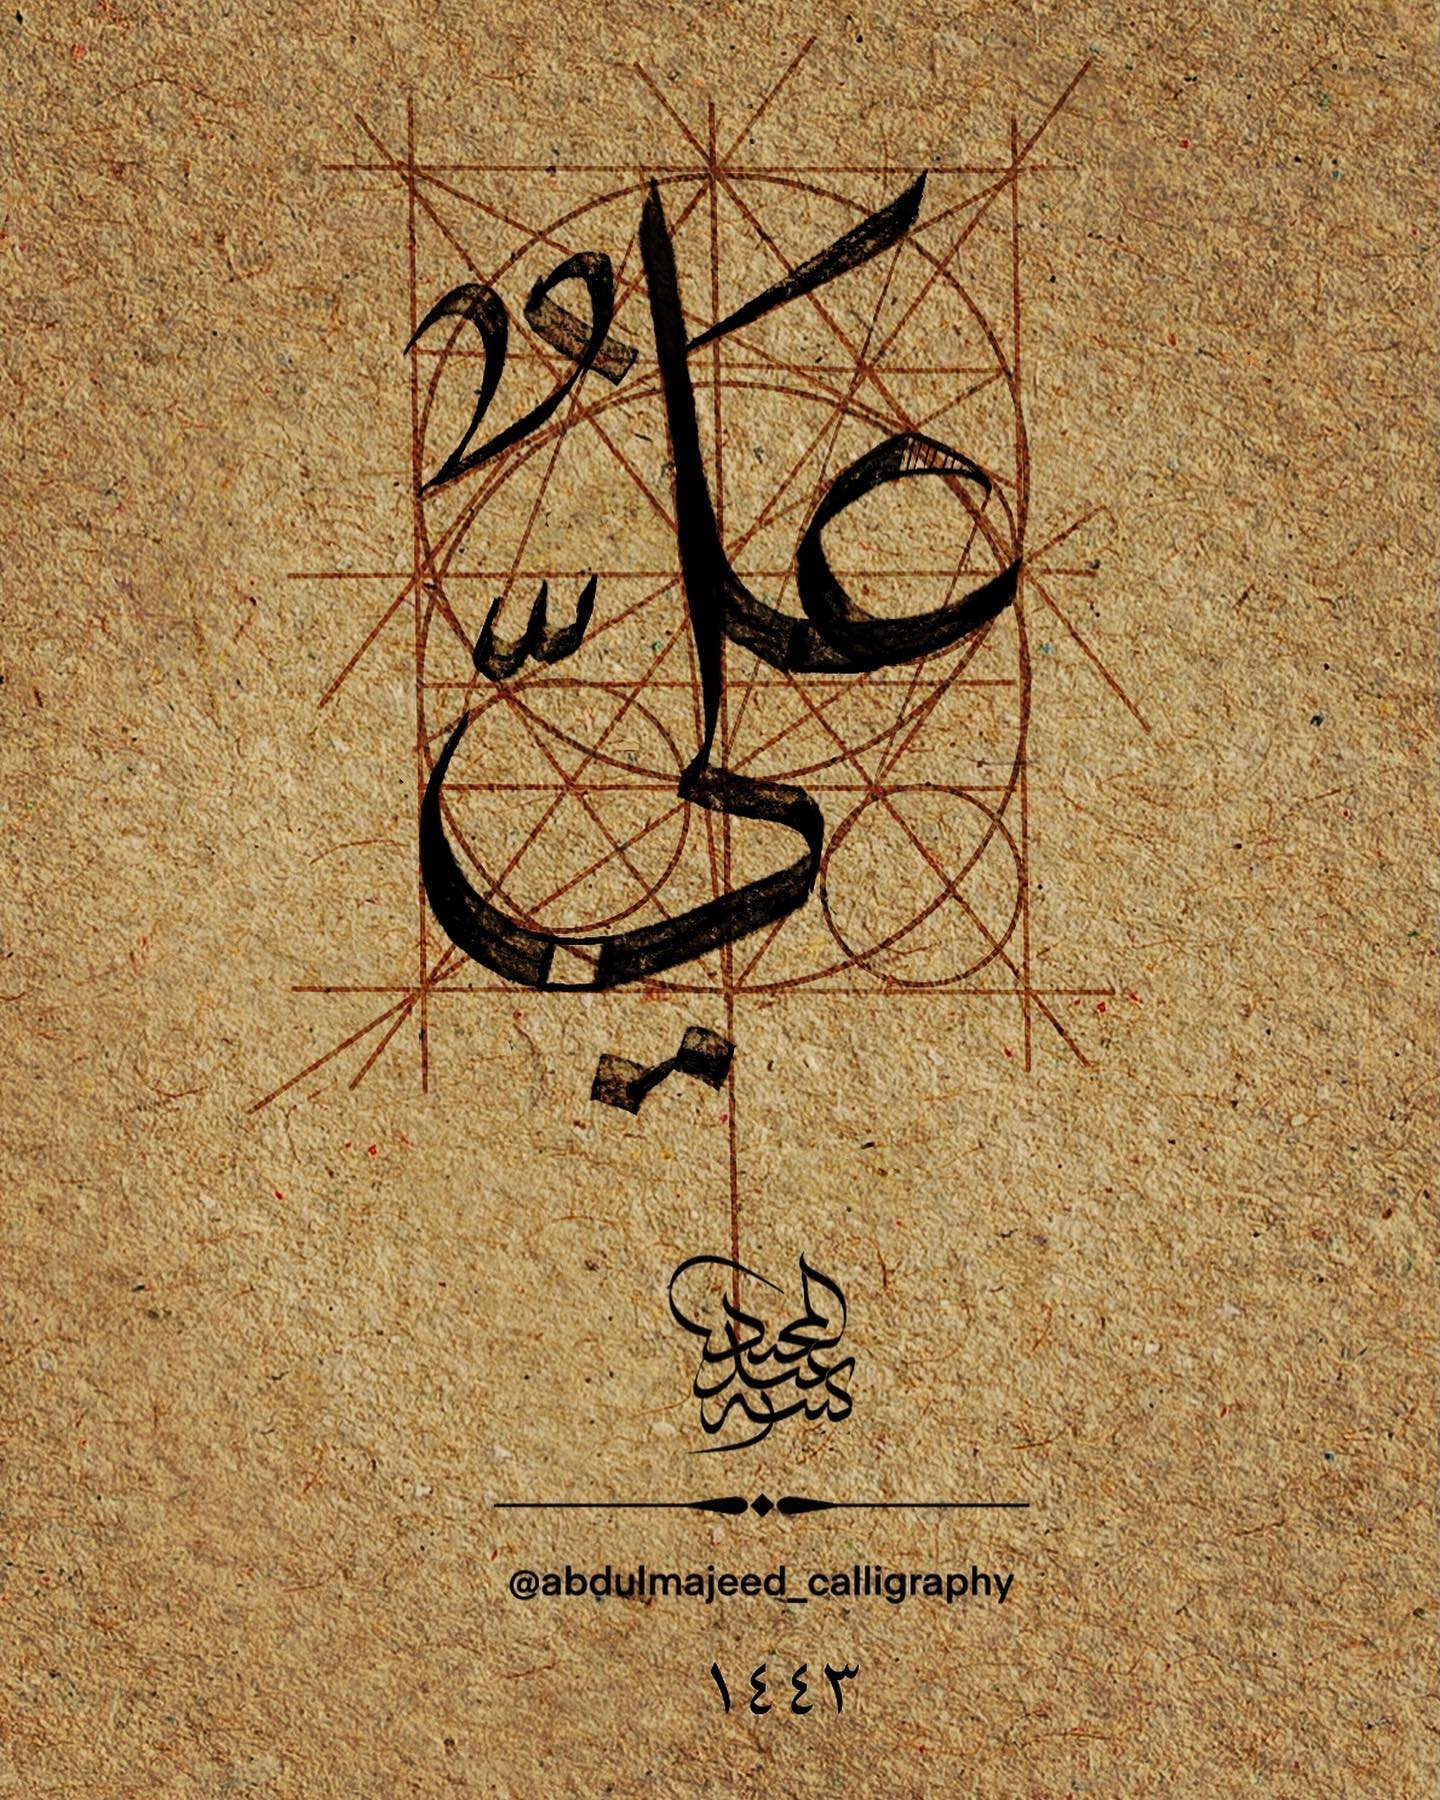 عليٌّ
المجيد
عبد
كتبه
@abdulmajeed_calligraphy
١٤٤٣